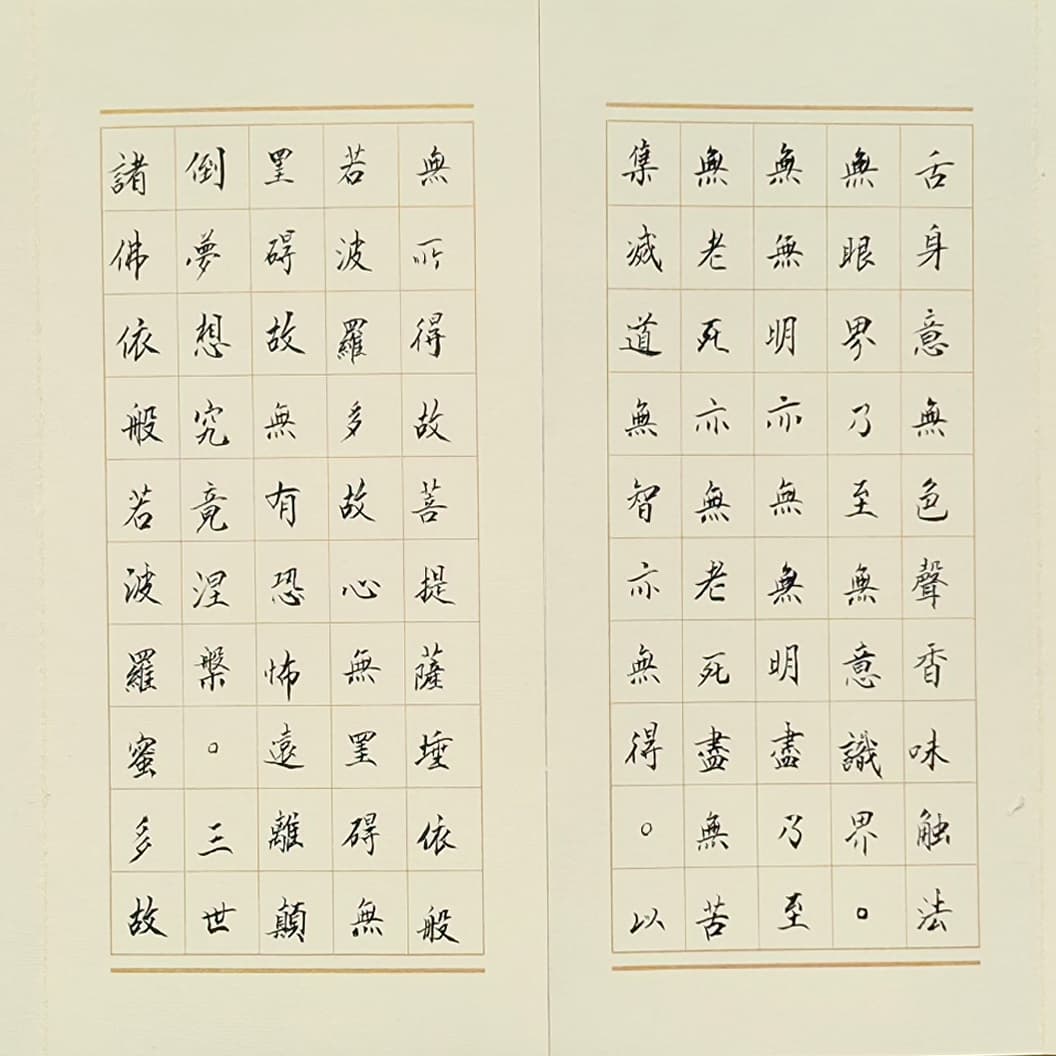 舌身意無色聲香味触法
無眼界乃至無意識界。
無無明亦無無明盡乃至
無老死亦無老死盡無苦
集滅道無智亦無得。以
無所得故菩提薩埵依般
若波羅多故心無罣碍無
罣碍故無有恐怖遠離顛
倒夢想究竟涅槃。三世
諸佛依般若波羅蜜多故